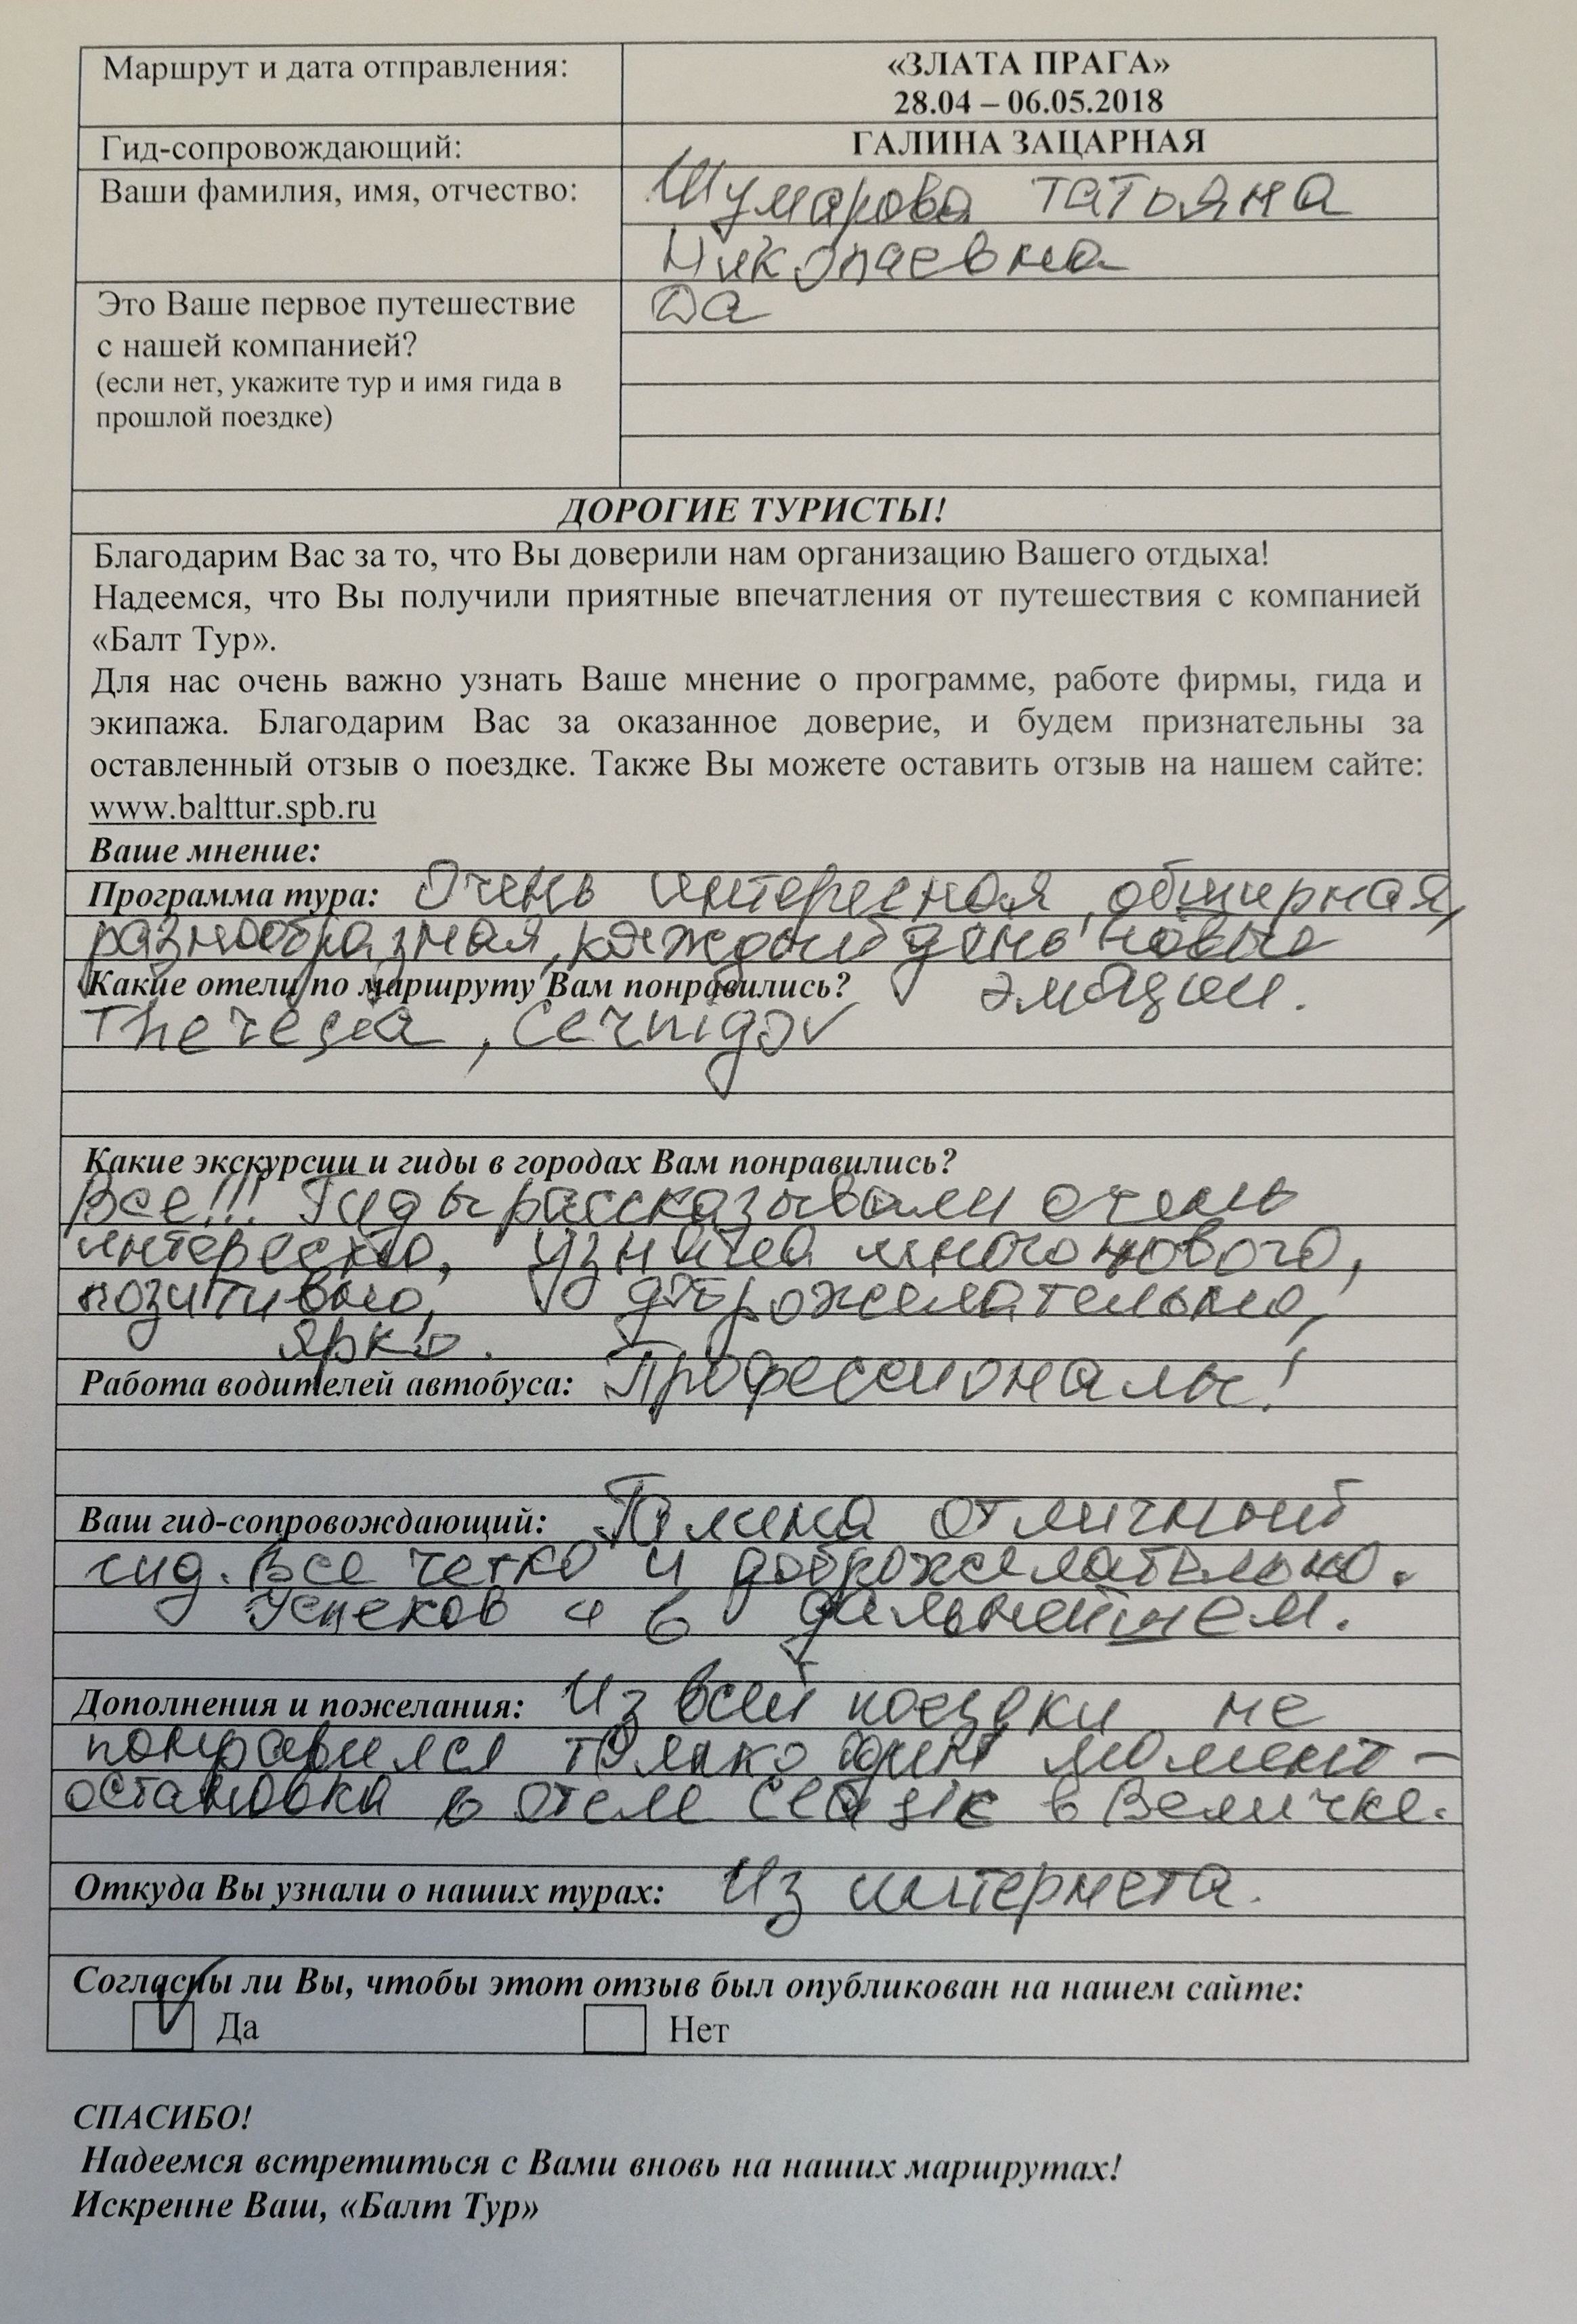 Маршрут и дата отправления:
«ЗЛАТА ПРАГА»
28.04 – 06.05.2018
Гид-сопровождающий:
ГАЛИНА ЗАЦАРНАЯ
Ваши фамилия, имя, отчество:
Шумарова Татьяна
Николаевна
Это Ваше первое путешествие
с нашей компанией?
(если нет, укажите тур и имя гида в
прошлой поездке)
Да
ДОРОГИЕ ТУРИСТЫ!
Благодарим Вас за то, что Вы доверили нам организацию Вашего отдыха!
Надеемся, что Вы получили приятные впечатления от путешествия с компанией
«Балт Тур».
Для нас очень важно узнать Ваше мнение о программе, работе фирмы, гида и
экипажа. Благодарим Вас за оказанное доверие, и будем признательны за
оставленный отзыв о поездке. Также Вы можете оставить отзыв на нашем сайте:
www.balttur.spb.ru
Ваше мнение:
Программа тура: Очень интересная, обширная,
разнообразная, каждый день новые
эмоции.
Какие отели по маршруту Вам понравились?
Theresia, Cernigov
Какие экскурсии и гиды в городах Вам понравились?
Все!!! Гиды рассказывали очень
интересно, узнала много нового,
позитивно, доброжелательно,
ярко.
Работа водителей автобуса: Профессионалы!
Ваш гид-сопровождающий: Галина отличный
гид. Все четко и доброжелательно.
Успехов и в дальнейшем.
Дополнения и пожелания: Из всей поездки не
понравился только один момент –
остановка в отеле в Величке.
Откуда Вы узнали о наших турах: Из интернета.
Согласны ли Вы, чтобы этот отзыв был опубликован на нашем сайте:
Да Нет
СПАСИБО!
Надеемся встретиться с Вами вновь на наших маршрутах!
Искренне Ваш, «Балт Тур»